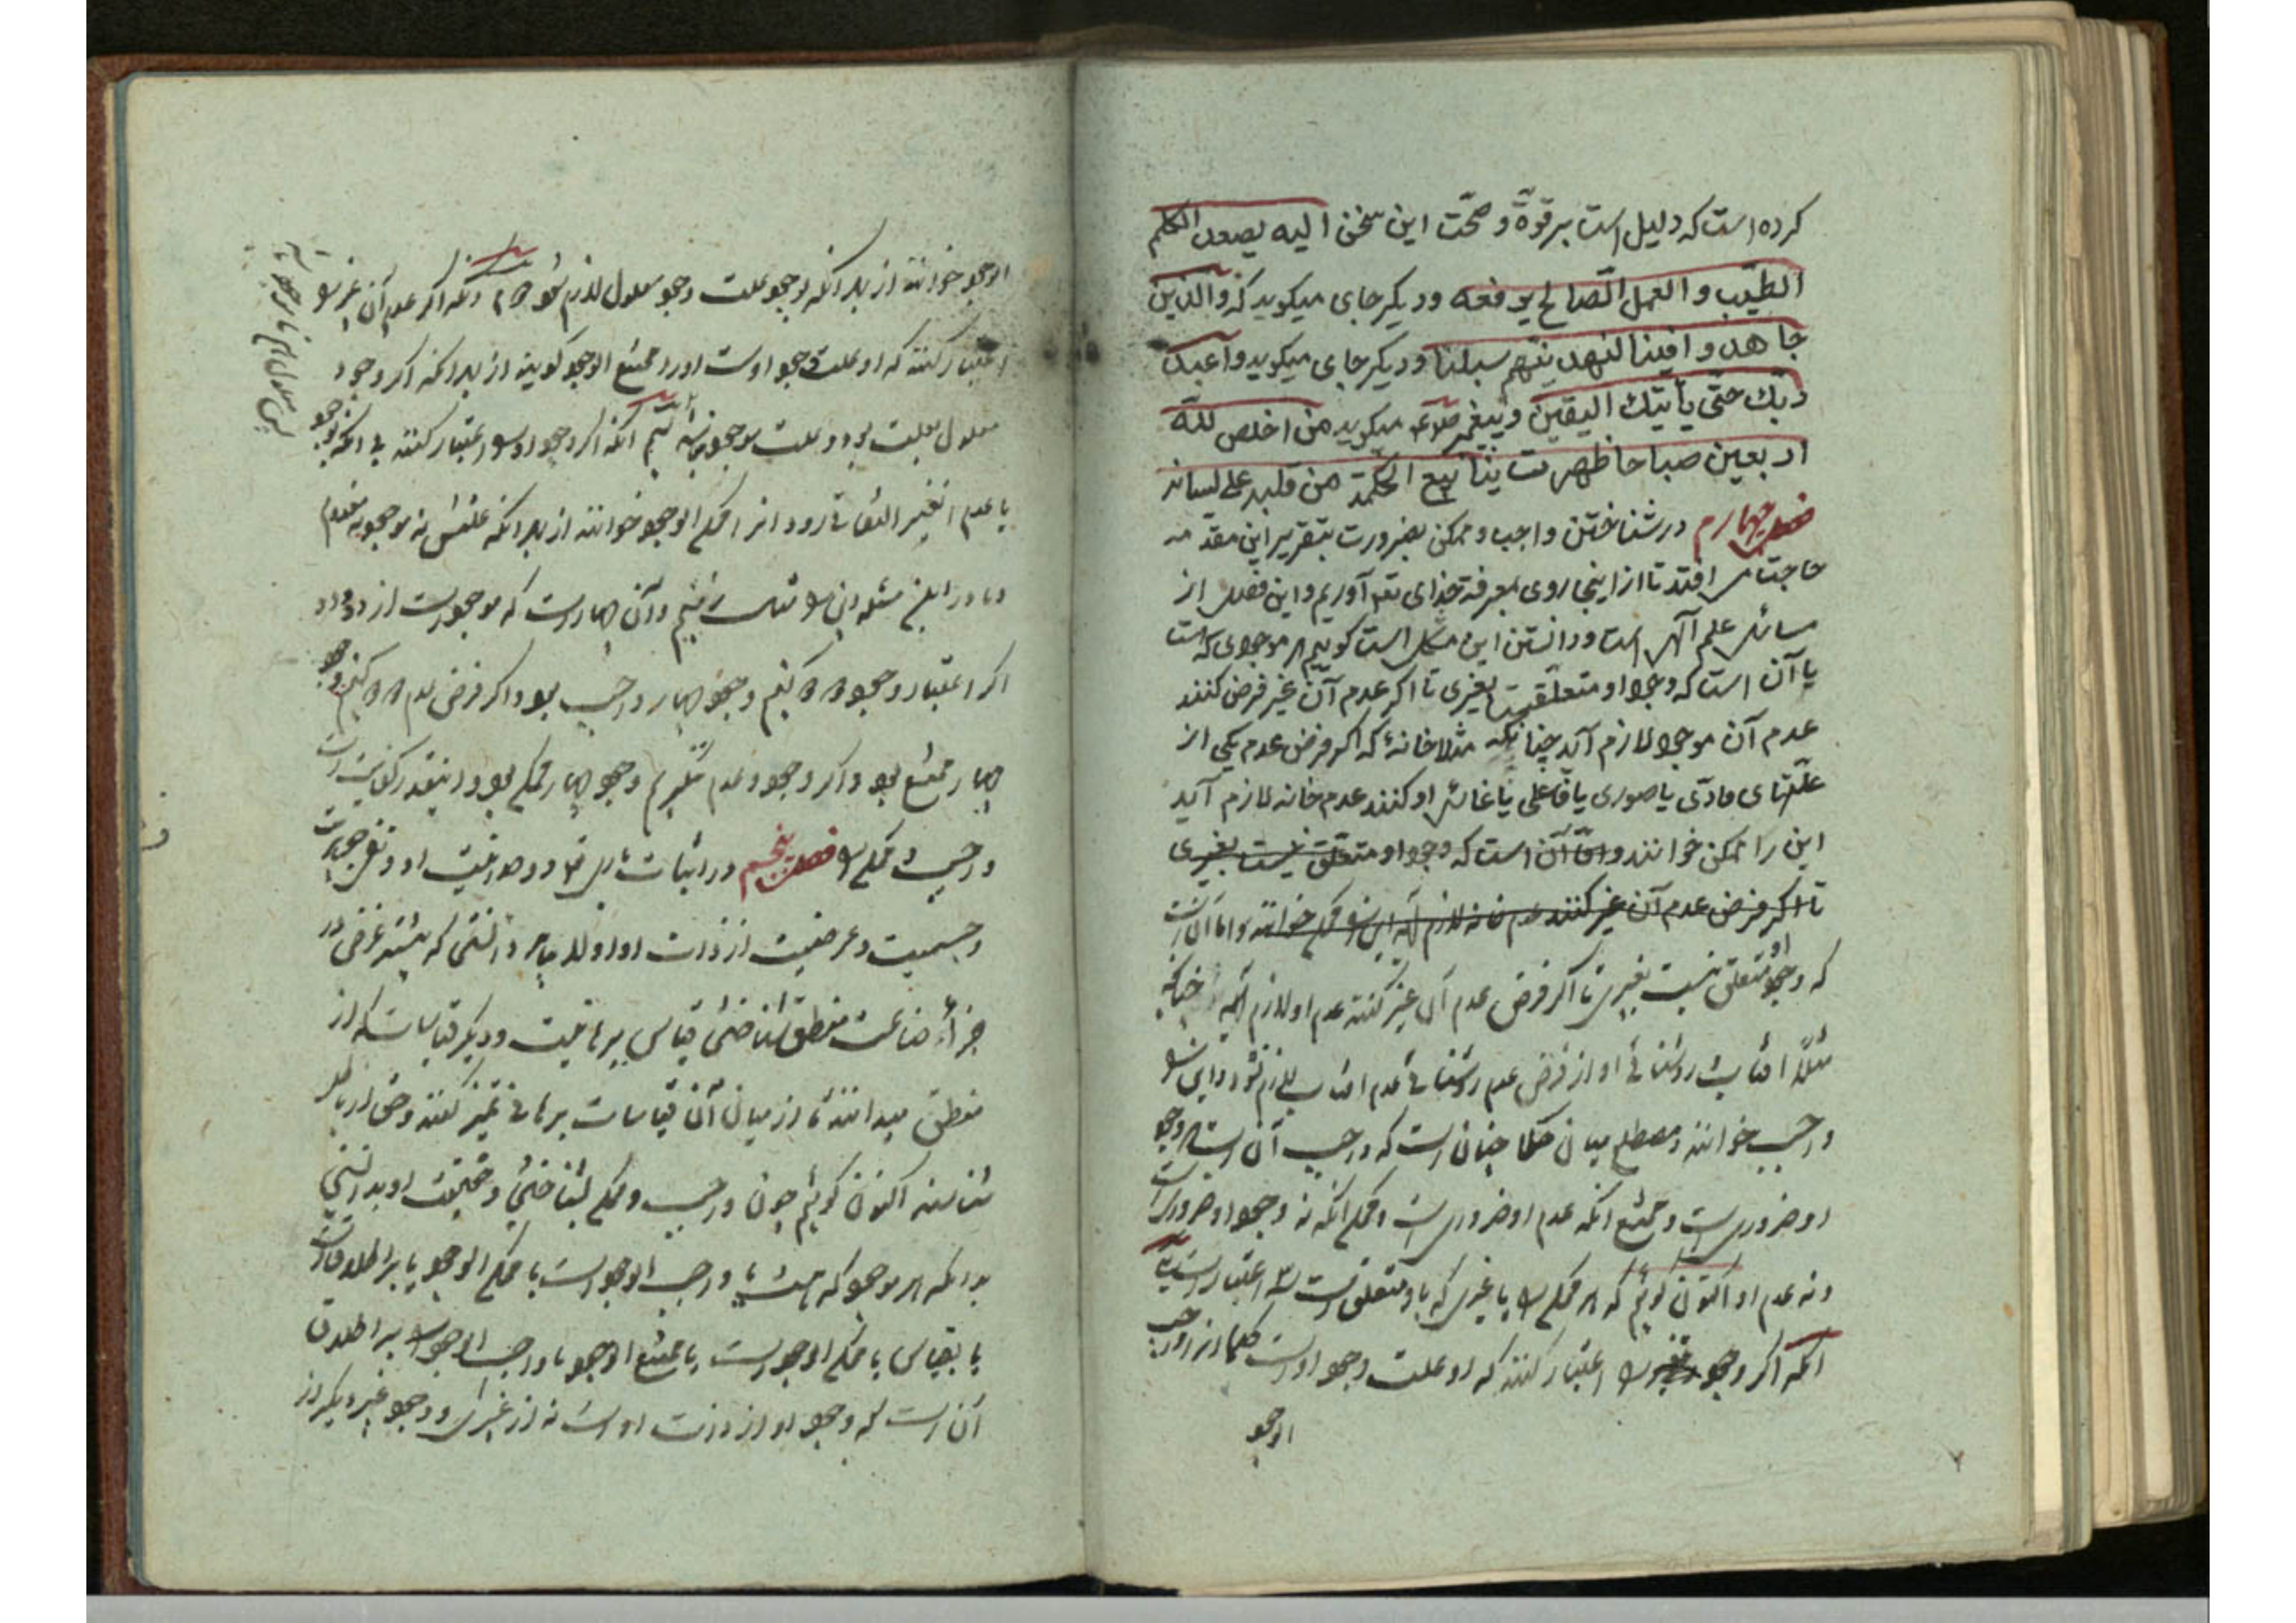 کرده است که دلیل است بر قوة و صحّت این سخن الیه یصعد الکلم
الطیّب و العمل الصّالح یرفعه و دیکر جای میکوید که والذین
جاهدوا فینا لنهدینهم سبلنا و دیکر جای میکوید و اعبد
ربّک حتّی یأتیک الیقین و پیغمبر میکوید من اخلص لله
اربعین صباحا ظهرت ینابیع الحکمة من قلبه علی لسانه
فصل چهارم در شناختن واجب و ممکن بضرورت بتقریر این مقدمه
حاجت می افتد تا از اینجا روی بمعرفة خدای تع آوریم و این فصل از
مسائل علم آلهی است و دانستن این مشکل است کوییم هر موجودی که هست
یا آن است که وجود او متعلّقست بغیری تا اکر عدم آن غیر فرض کنند
عدم آن موجود لازم آید چنانکه مثلا خانۀ که اکر فرض عدم یکی از
علّتهای مادّی یا صوری یا فاعلی یا غائی او کنند عدم خانه لازم آید
این را ممکن خوانند و امّا آن است که وجود او متعلّق نیست بغیری
تا اکر فرض عدم آن غیر کنند عدم خانه لازم آید این را ممکن خوانند و اما آن است
که وجود او متعلق نیست بغیری تا اکر فرض عدم آن غیر کنند عدم او لازم آید چنانکه
مثلاً افتاب روشنائی او از فرض عدم روشنائی عدم افتاب لازم نشود و این را
واجب خوانند و مصطلح میان حکما چنان است که واجب آن است که وجود
او ضروریست و ممتنع آنکه عدم او ضروری است و ممکن آنکه نه وجود او ضروری است
و نه عدم او اکنون کوئیم که هر ممکن را با غیری که باو متعلق است سه اعتبار است
آنکه اکر وجود غیر را اعتبار کنند که او علت وجود اوست حکما انرا واجب
الوجود
الوجود خوانند از بهر آنکه بوجود علت وجود معلول لازم شود دوم آنکه اکر عدم آن غیر را
اعتبار کنند که او علت وجود اوست او را ممتنع الوجود کویند از بهر آنکه اکر وجود
معلول بعلت بود و علت موجود نباشد سیم آنکه اکر وجود او را اعتبار کنند بی آنکه بوجود
یا عدم آن غیر التفاتی رود انرا ممکن الوجود خوانند از بهر آنکه بنفس نه موجود نه معدوم
و ما در این مسئله دنی را مثال زنیم و آن چهار است که موجود است از دو و دو
اکر اعتبار وجود دو دو کنیم وجود چهار واجب بود و اکر فرض عدم دو دو کنیم وجود
چهار ممتنع بود و اکر وجود و عدم ننکریم وجود چهار ممکن بود و اینقدر کفایت است
واجب و ممکن را فصل پنجم در اثبات باری تع و وحدانیت او و نفی جوهریت
و جسمیت و عرضیت از ذات او اولا بباید دانستن که بیشتر غرض در
جزأ صناعت منطق شناختن قیاس برهانیست و دیکر قیاسات که از
منطق میدانند تا از میان آن قیاسات برهانی تمیز کنند و حق از باطل
شناسند اکنون کوئیم چون واجب و ممکن بشناختی و حقیقت او بدانستی
بدانکه هر موجود که هست یا واجب الوجود است یا ممکن الوجود یا بر اطلاق است
یا بقیاس یا ممکن الوجود است یا ممتنع الوجود و اما واجب الوجود بر اطلاق
آن است که وجود او از ذات اوست نه از غیری و وجود غیر دیکر از